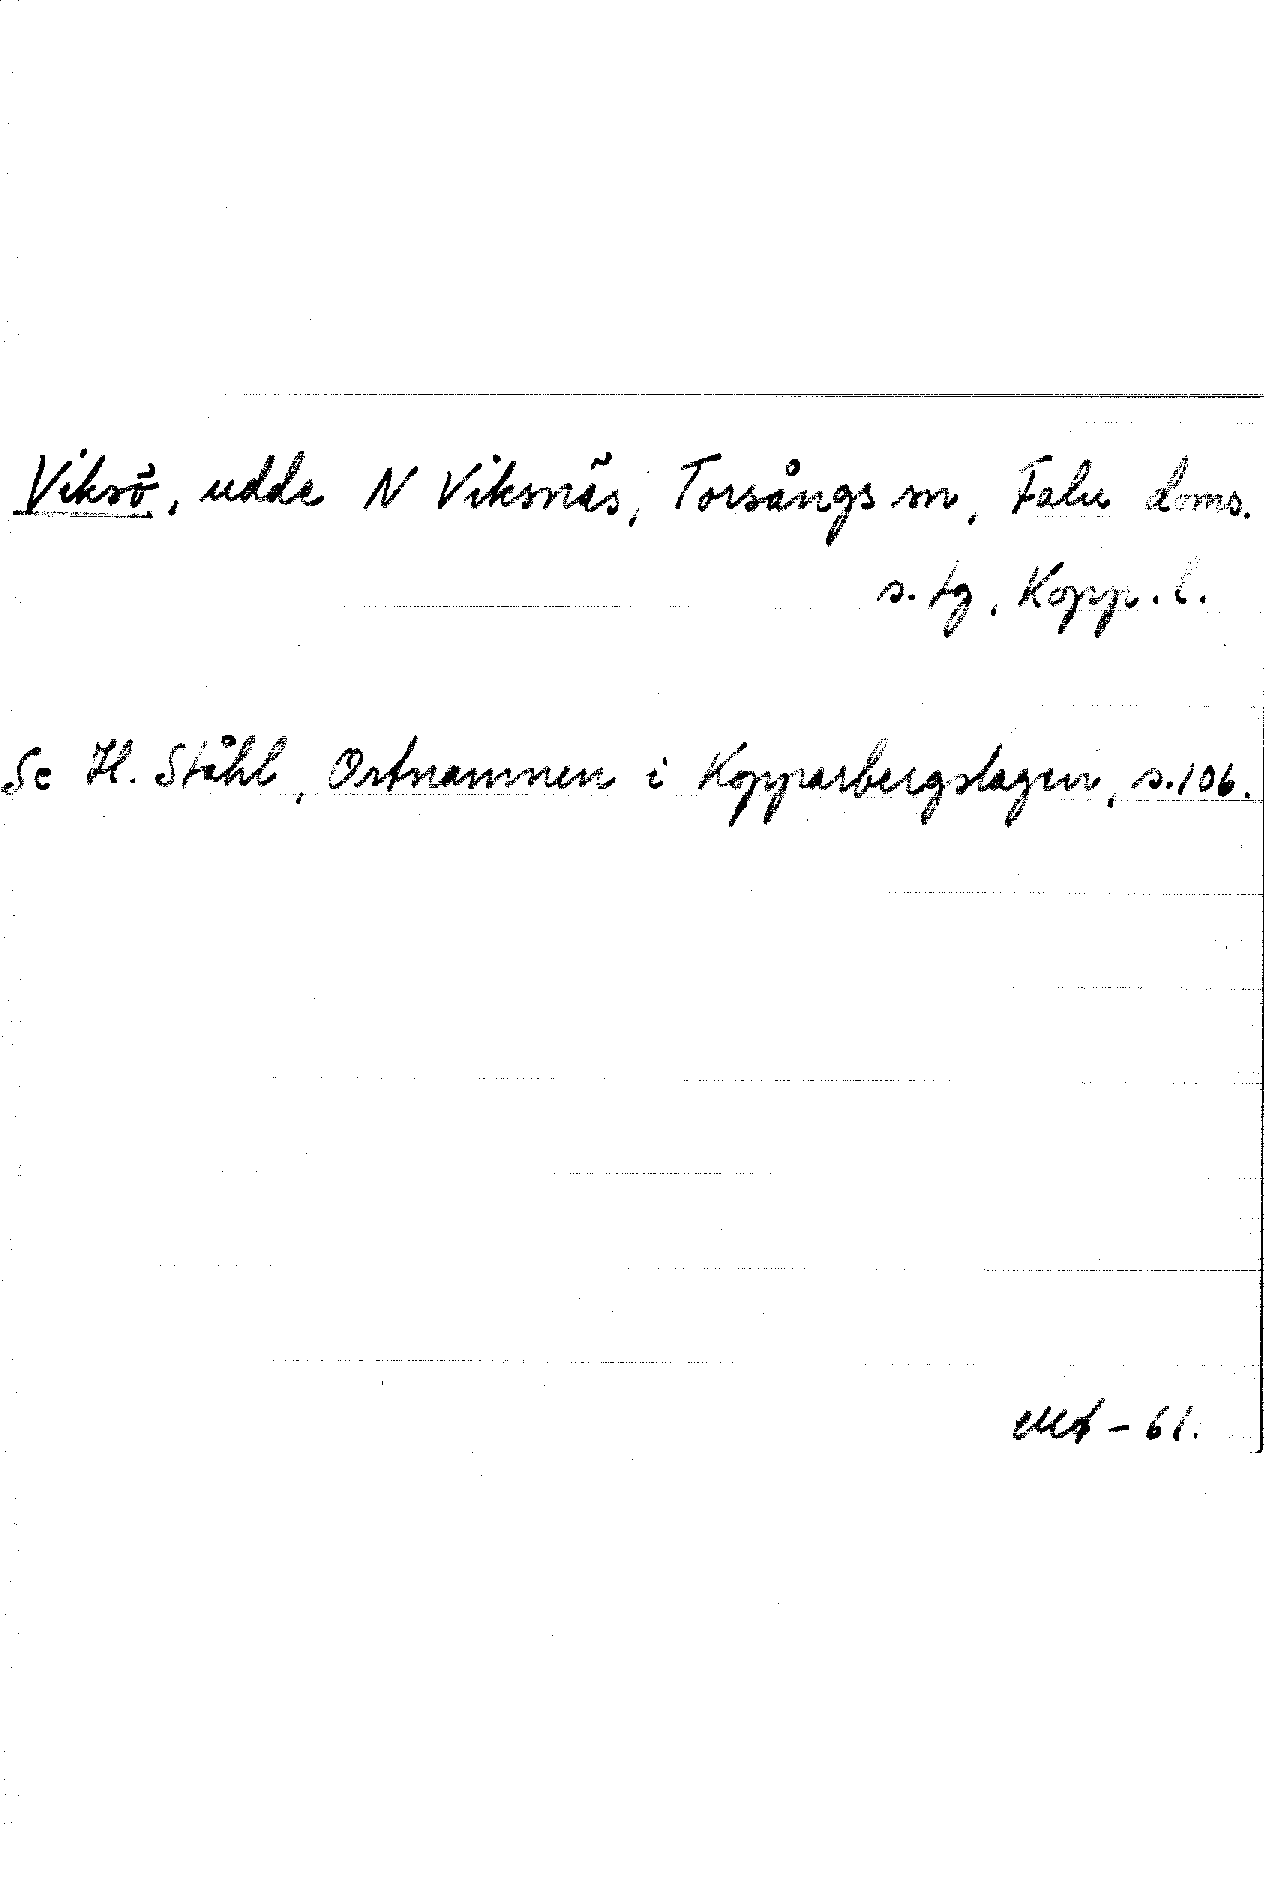 Viksö, udde N Viksnäs, Torsångs sn, Falu doms.
s. tg, Kopp. l.
Se H. Ståhl, Ortnamnen i Kopparbergslagen, s. 106.
-61.